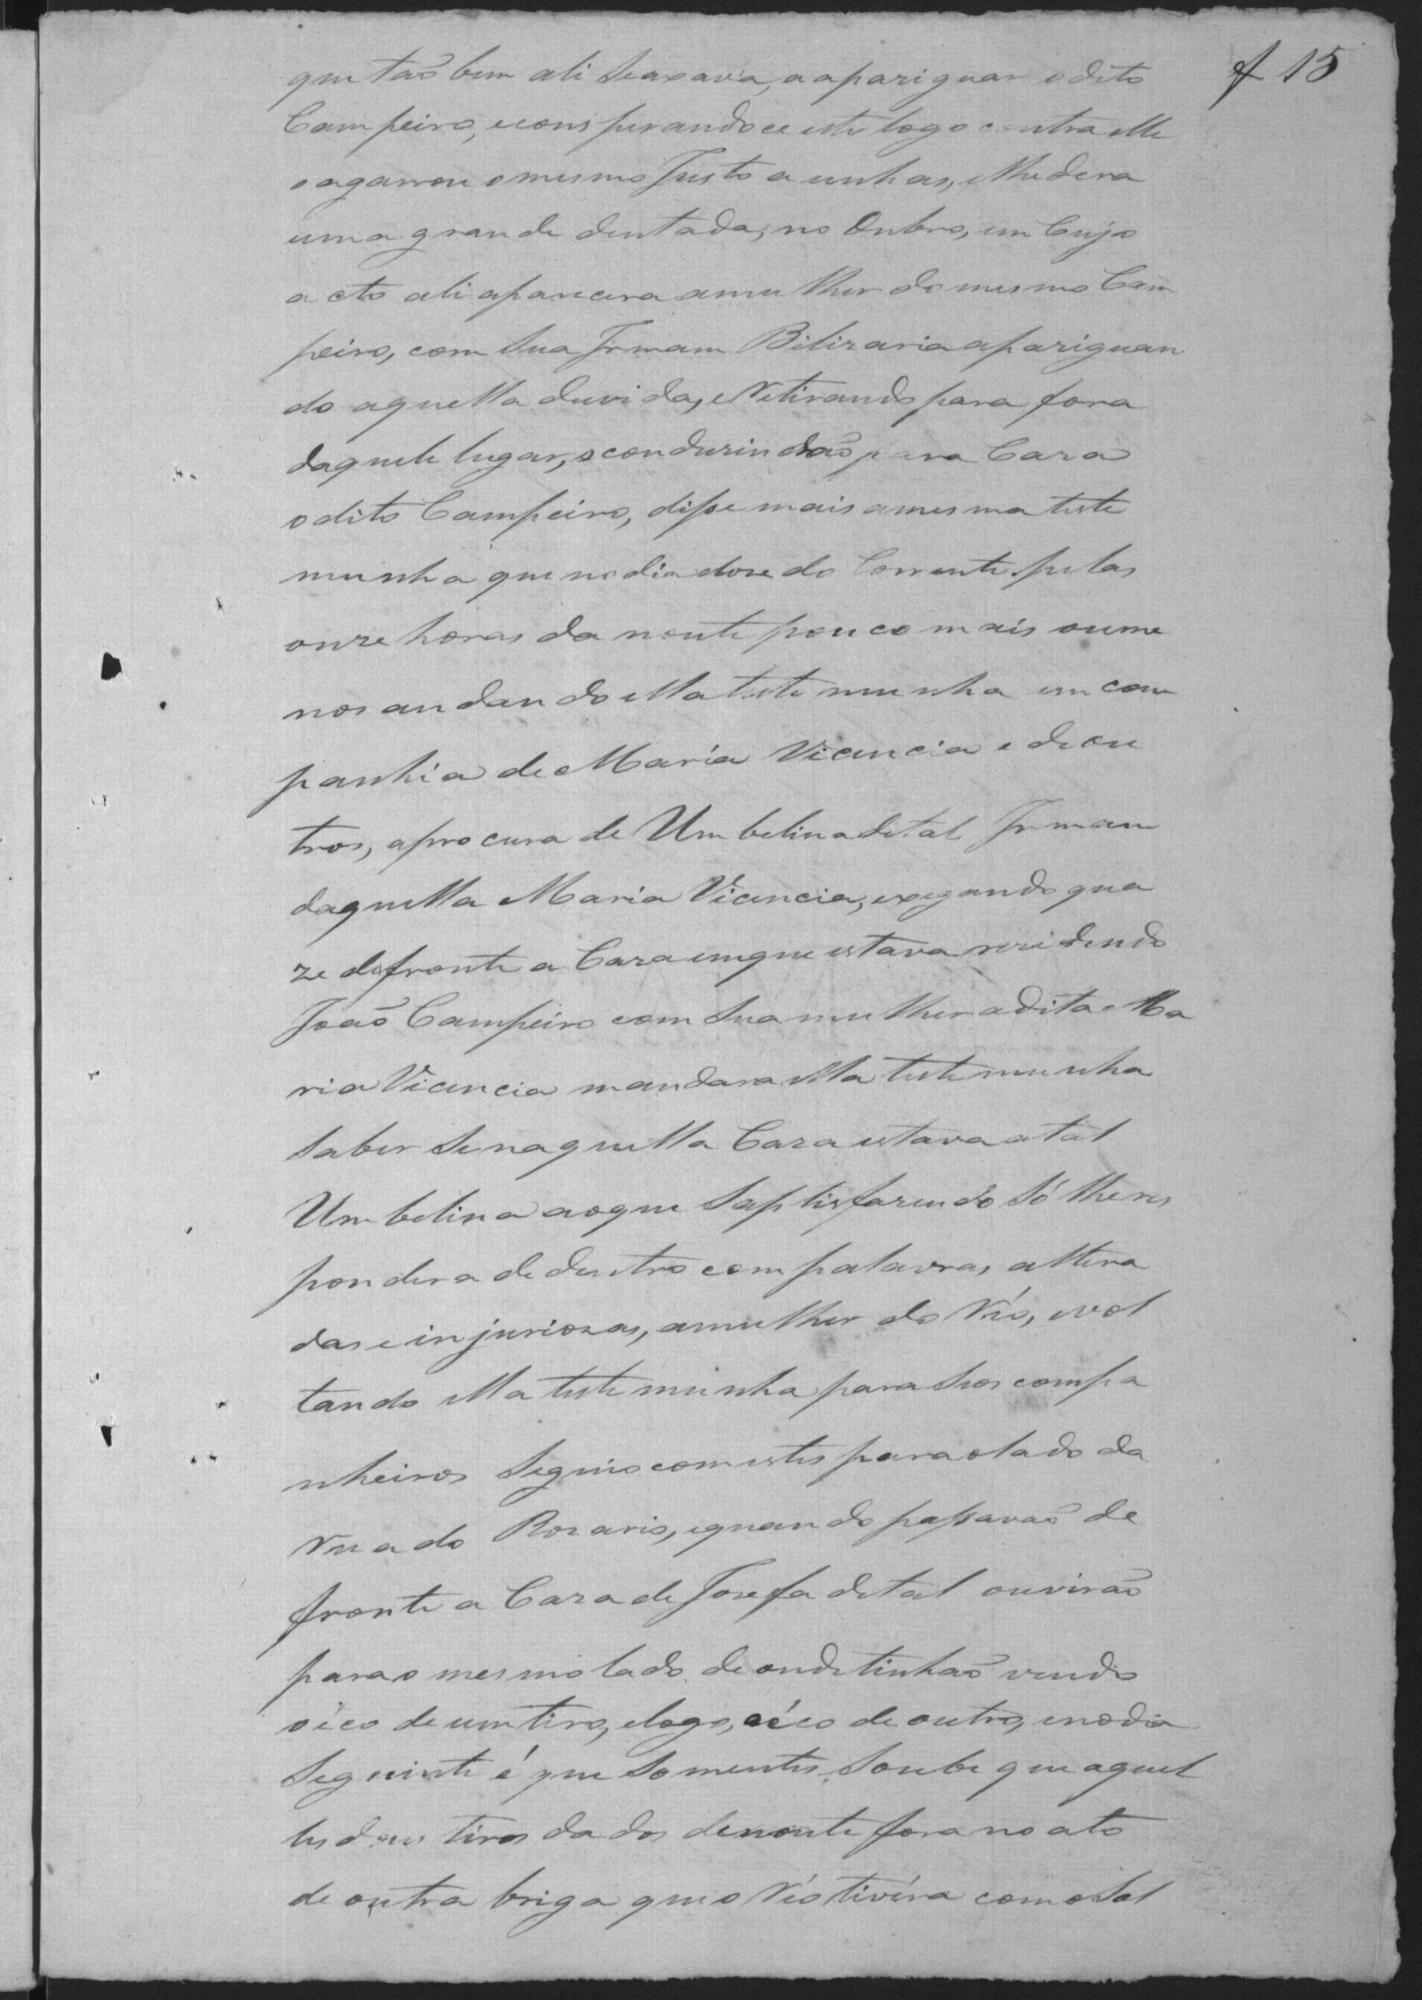 f 15
que taõ bem ali se axava, a apariguar o dito
Campeiro, e conspirandoce este logo contra elle
o agarrou o mesmo Justo a unhas, elhe dera
uma grande dentada, no Onbro, em Cujo
acto ali aparecera a mulher do mesmo Cam
peiro, com Sua Irmam Bilizaria apariguan
do aquella duvida, e Retirando para fora
daquele lugar, e conduzindo para Caza
o dito Campeiro, disse mais a mesma teste
munha que no dia doze do Corrente pelas
onze horas da noute pouco mais oume
nos andando ella testemunha em com
panhia de Maria Vicencia e de ou
tros, a procura de Umbelina de tal Irmam
daquella Maria Vicencia, exegando qua
ze defronte a Caza emque estava rezidindo
Joaõ Campeiro com Sua mulher a dita Ma
ria Vicencia mandara ella testemunha
saber se naquella Caza estava a tal
Umbelina aoque Saptisfazendo Só lheres
pondera de dentro com palavras altera
das e injuriozas, a mulher do Réo, evol
tando ella testemunha para Seos compa
nheiros Seguio comestes para o lado da
Rua do Rozario, equando passavaõ de
fronte a Caza de Josefa de tal ouviraõ
para o mesmo lado de onde tinhaõ vindo
o éco de um tiro, elogo, o éco de outro, enodia
Seguinte é que Somentes Soube que aquel
les dous tiros dados de noute fora no ato
de outra briga que o Réo tivéra com o Sol